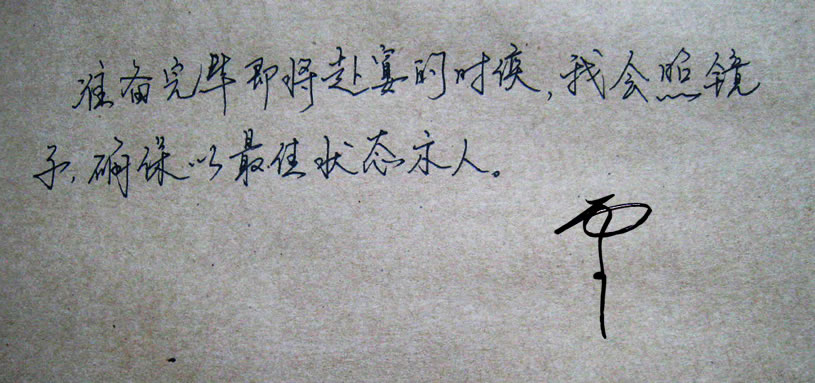 准备完毕即将赴宴的时候,我会照镜
子,确保以最佳状态示人。